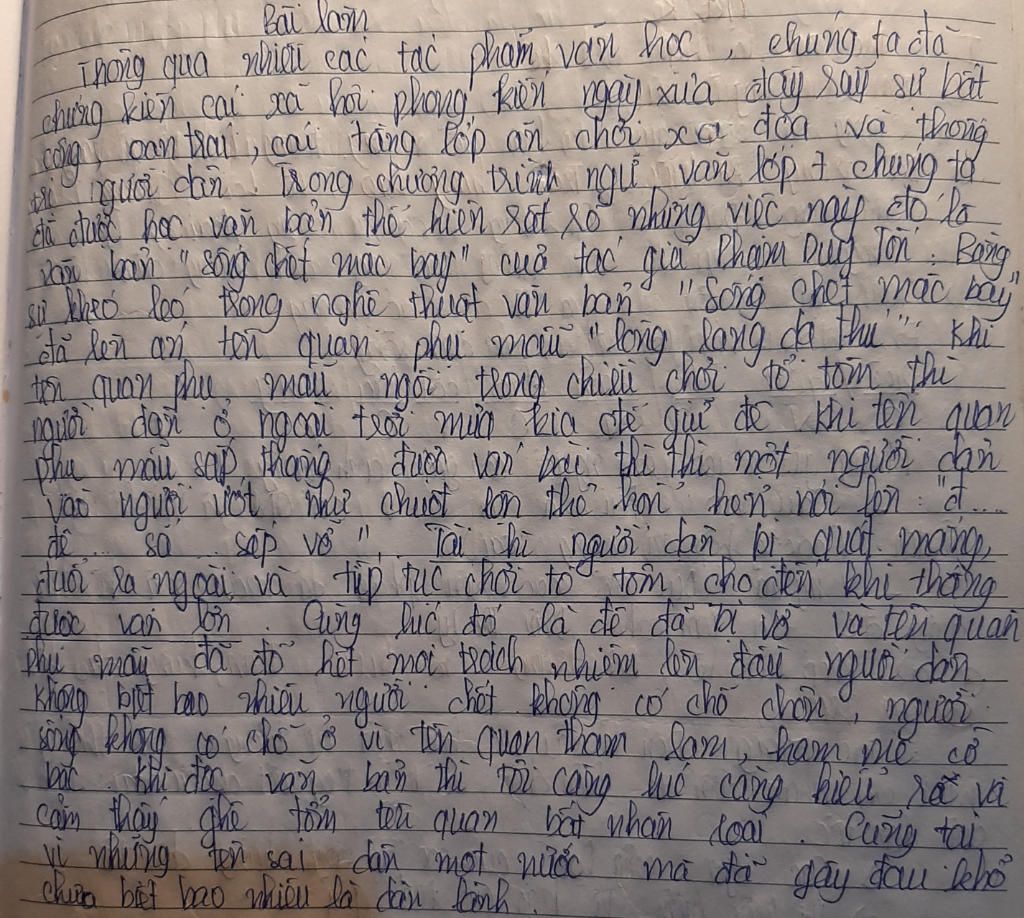 Bài làm
Thông qua nhiều các tác phẩm văn học, chúng ta đã
chứng kiến cái xã hội phong kiến ngày xưa đầy rẫy sự bất
công, oan trái, cái tầng lớp ăn chơi xa đọa và thống
trị người dân. Trong chương trình ngữ văn lớp 7 chúng ta
đã được học văn bản thể hiện rất rõ những việc này đó là
văn bản "sống chết mặc bay" của tác giả Phạm Duy Tốn. Bằng
sự khéo léo trong nghệ thuật văn bản "Sống chết mặc bay"
đã lên án tên quan phụ mẫu "lòng lang dạ thú". Khi
tên quan phụ mẫu ngồi trong chiếu chơi tổ tôm thì
người dân ở ngoài trời mưa kia để giữ đê khi tên quan
phụ mẫu sắp thắng được ván bài thì thì một người dân
vào người ướt như chuột lột thở hổn hển nói lên: "đ....
đê... sạ... sắp vỡ". Tại thì người dân bị quát mắng,
đuổi ra ngoài và tiếp tục chơi tổ tôm cho đến khi thắng
được ván lớn. Cùng lúc đó là đê đã bị vỡ và tên quan
phụ mẫu đã đổ hết mọi trách nhiệm lên đầu người dân.
không biết bao nhiêu người chết không có chỗ chôn, người
sống không có chỗ ở vì tên quan tham lam, ham mê cờ
bạc. Khi đọc văn bản thì tôi càng lúc càng hiểu rõ và
cảm thấy ghê tởm tên quan bất nhân loại. Cũng tại
vì những tên sai dân một nước mà đã gây đau khổ
chưa biết bao nhiêu là dân lành.